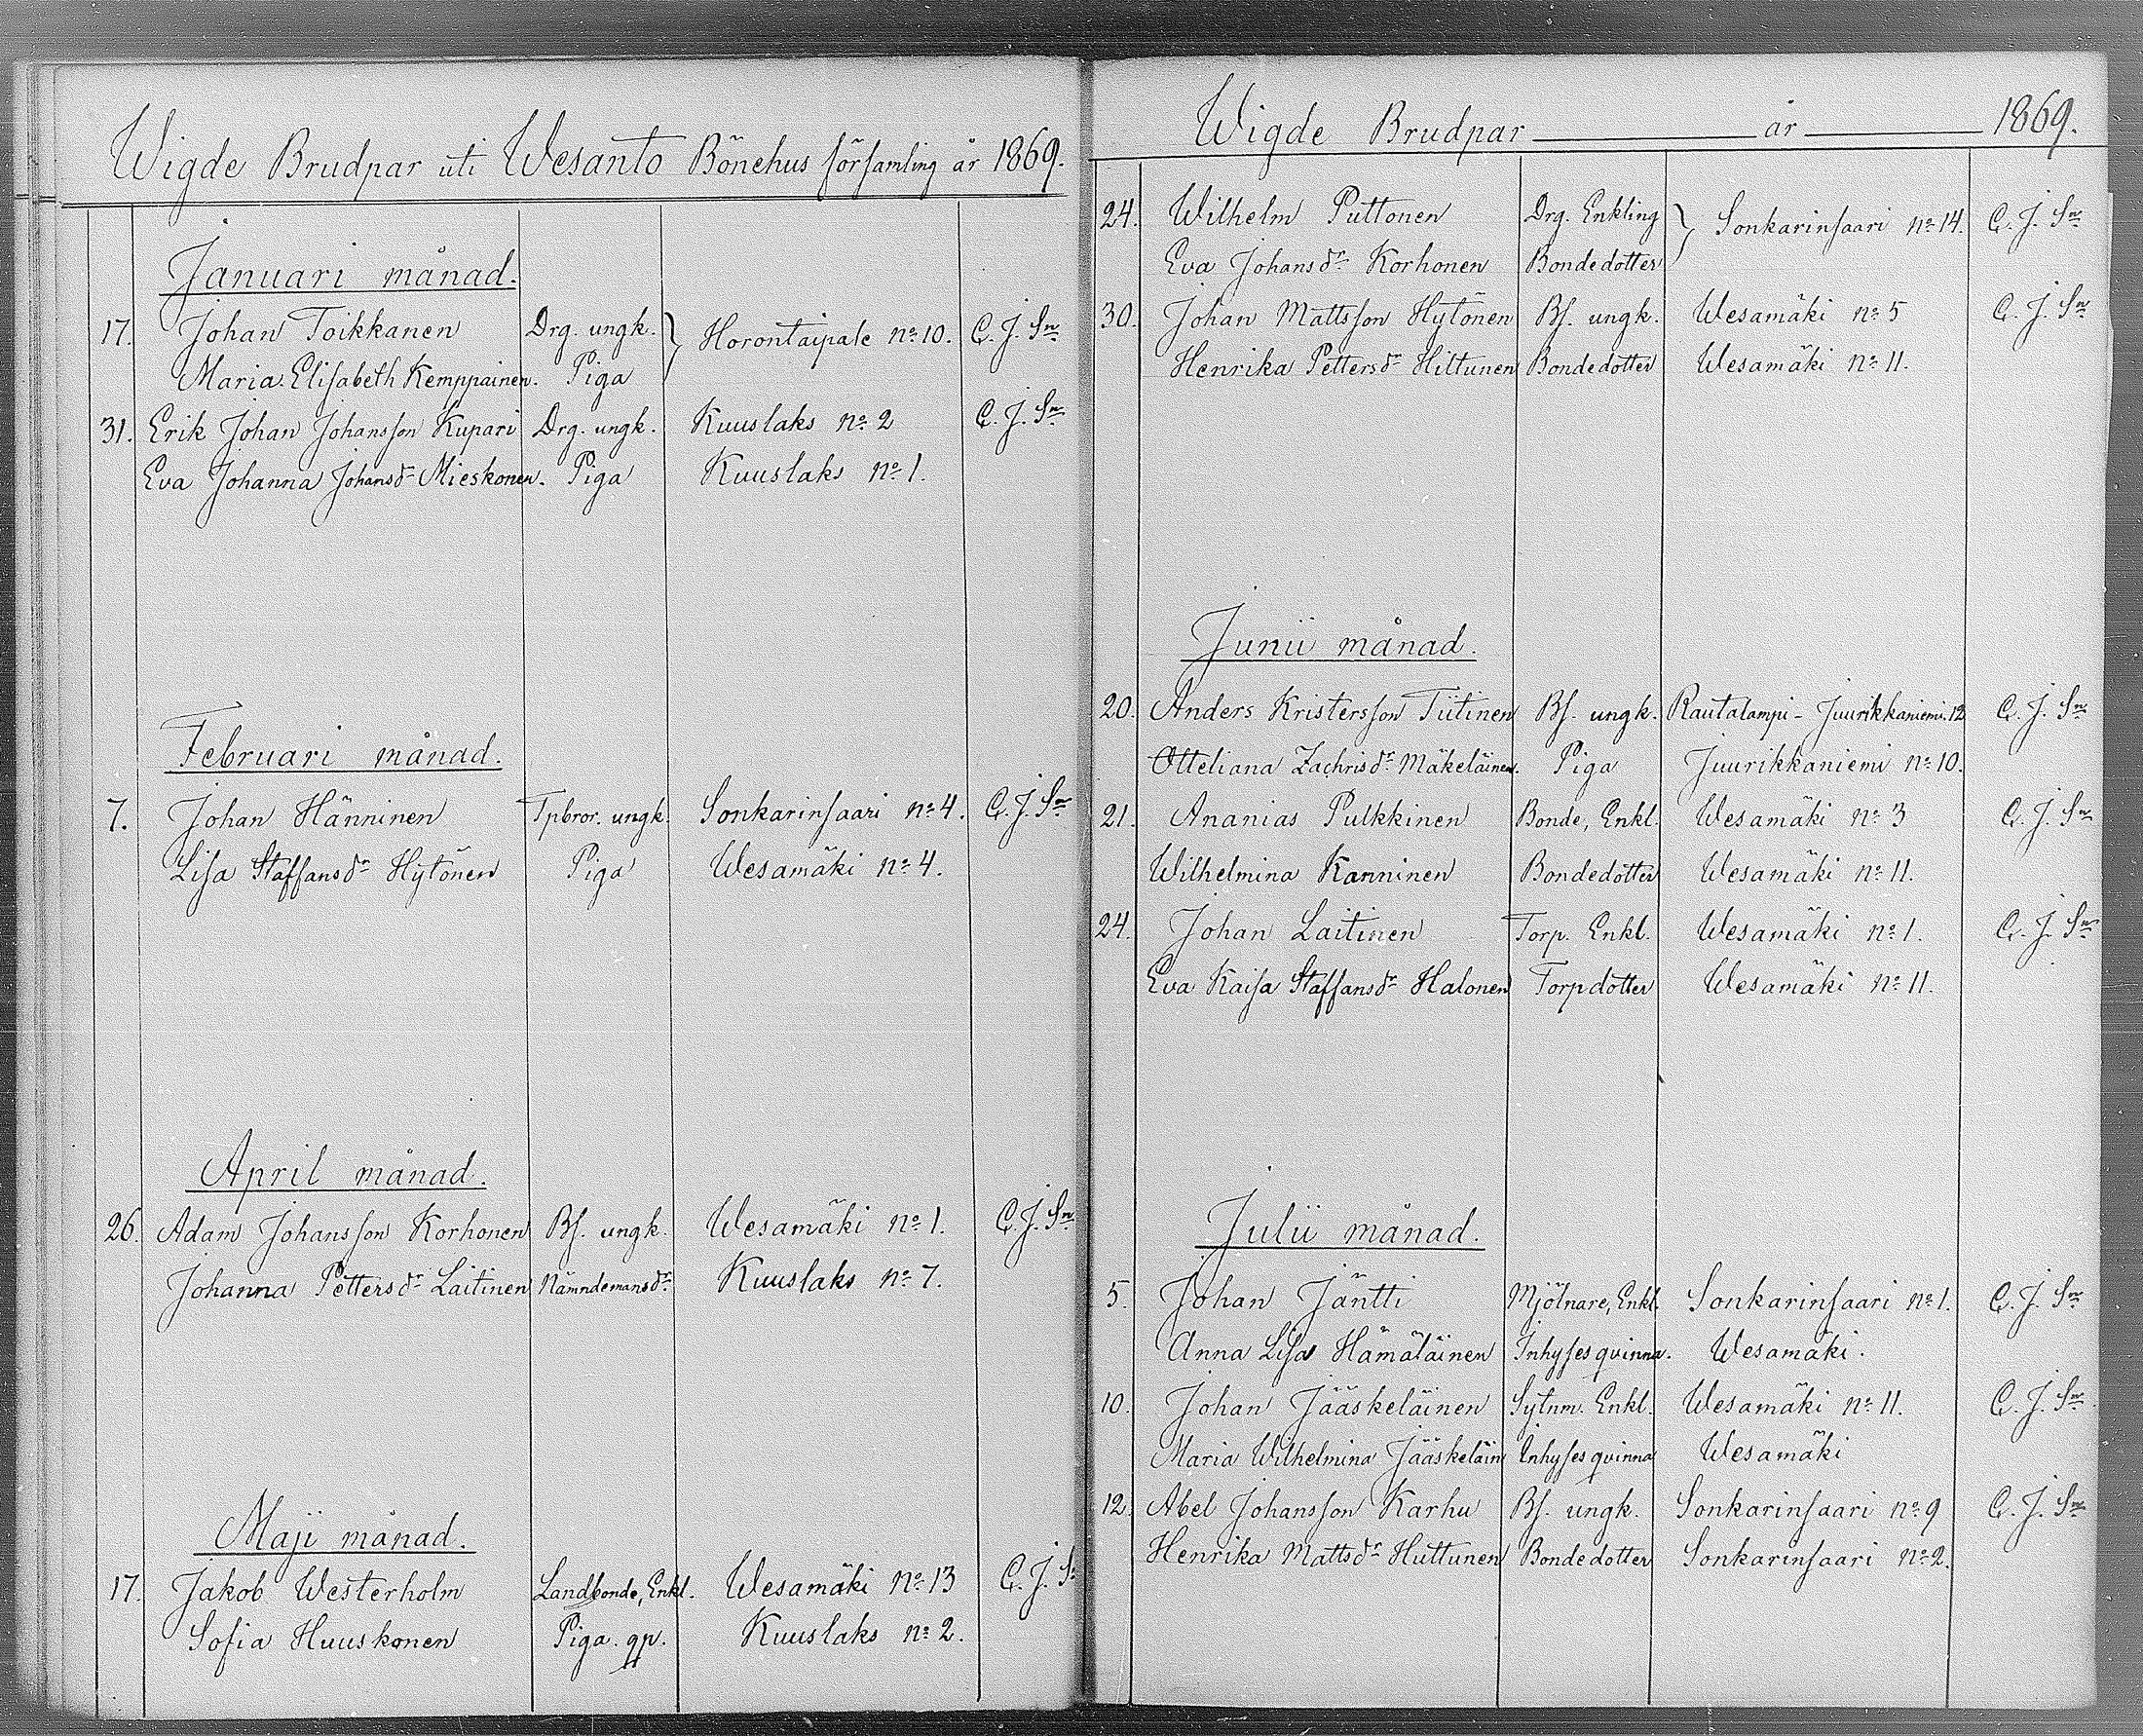 Wigde Brudpar uti Wesanto Bönehus församling år 1869.
Januari månad.
17. Johan Toikkanen Drg. ungk. } Horontaipale No 10. C. J. Sn
Maria Elisabeth Kemppainen. Piga
31. Erik Johan Johansson Kupari Drg. ungk. Kuuslaks No 2 C. J. Sn
Eva Johanna Johansdr Mieskonen. Piga Kuuslaks No 1.
Februari månad.
7. Johan Hänninen Tpbror. ungk. Sonkarinsaari No 4. C. J. Sn
Lisa Staffansdr Hytönen Piga Wesamäki No 4.
April månad.
26. Adam Johansson Korhonen Bs. ungk. Wesamäki No 1. C. J. Sn
Johanna Pettersdr Laitinen Nämndemansdr Kuuslaks No 7.
Maji månad.
17. Jakob Westerholm Landbonde, Enkl. Wesamäki No 13 C. J. S
Sofia Huuskonen Piga. qp. Kuuslaks No 2.
Wigde Brudpar år 1869.
24. Wilhelm Puttonen Drg. Enkling } Sonkarinsaari No 14. C. J. Sn
Eva Johansdr Korhonen Bondedotter
30. Johan Mattsson Hytönen Bs. ungk. Wesamäki No 5 C. J. Sn
Henrika Pettersdr Hiltunen Bondedotter Wesamäki No 11.
Junii månad.
20. Anders Kristersson Tiitinen Bs. ungk. Rautalampi - Juurikkaniemi. 12 C. J. Sn
Otteliana Zachrisdr Mäkeläinen. Piga Juurikkaniemi No 10.
21. Ananias Pulkkinen Bonde, Enkl. Wesamäki No 3 C. J. Sn
Wilhelmina Kanninen Bondedotter Wesamäki No 11.
24. Johan Laitinen Torp. Enkl. Wesamäki No 1. C. J. Sn
Eva Kaisa Staffansdr Halonen Torpdotter Wesamäki No 11.
Julii månad.
5. Johan Jäntti Mjölnare, Enkl. Sonkarinsaari No 1. C. J. Sn
Anna Lisa Hämäläinen Inhysesqvinna. Wesamäki.
10. Johan Jääskeläinen Sytnm. Enkl. Wesamäki No 11. C. J. Sn
Maria Wilhelmina Jääskeläin Inhysesqvinna Wesamäki
12. Abel Johansson Karhu Bs. ungk. Sonkarinsaari No 9 C. J. Sn
Henrika Mattsdr Huttunen Bondedotter Sonkarinsaari No 2.